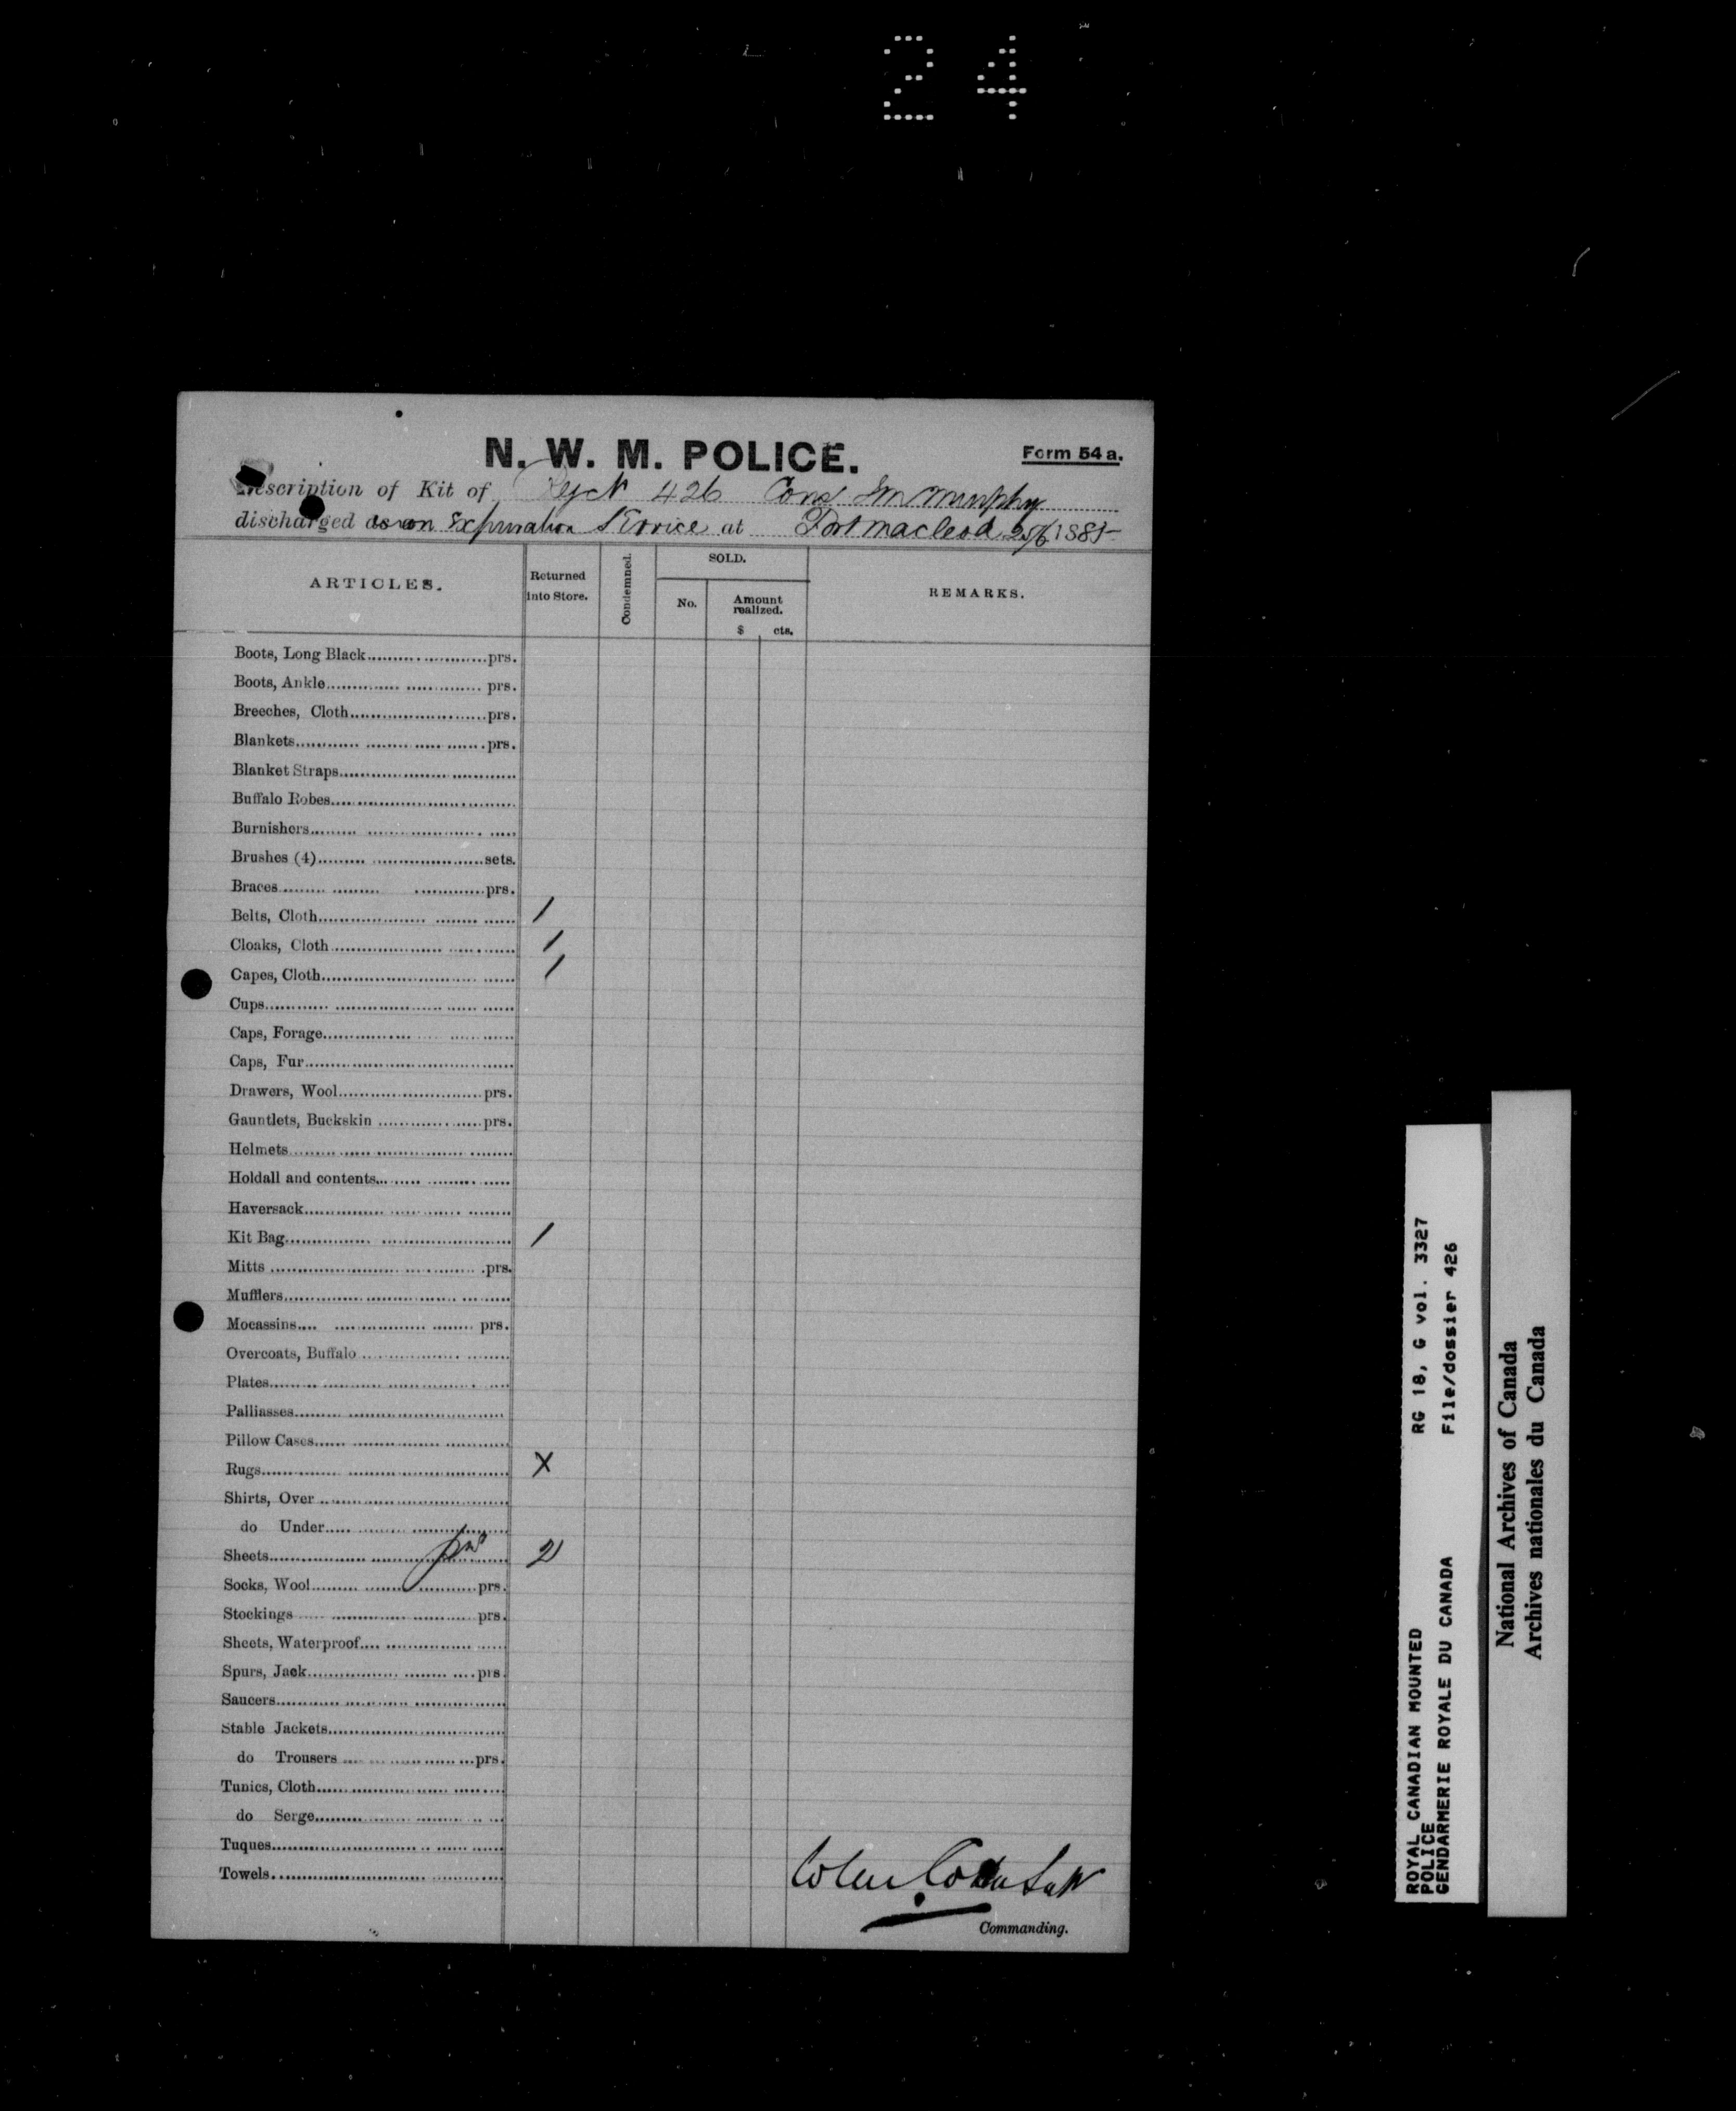 24
N. W. M. POLICE.
Form 54 a.
Description of Kit of Regt N 426 Cons Murphy
discharged as on Expiration Service at Fort Macleod 25/6 1885
ARTICLES.
Returned into Store.
Condemned.
SOLD.
No.
Amount realized.
$ cts.
REMARKS.
Boots, Long Black prs.
Boots, Ankle prs.
Breeches, Cloth prs.
Blankets prs.
Blanket Straps
Buffalo Robes
Burnishers
Brushes (4) sets.
Braces prs.
Belts, Cloth 1
Cloaks, Cloth 1
Capes, Cloth 1
Cups
Caps, Forage
Caps, Fur
Drawers, Wool prs.
Gauntlets, Buckskin prs.
Helmets
Holdall and contents
Haversack
Kit Bag 1
Mitts prs.
Mufflers
Mocassins prs.
Overcoats, Buffalo
Plates
Palliasses
Pillow Cases
Rugs X
Shirts, Over
do Under
Sheets prs 2
Socks, Wool prs.
Stockings prs.
Sheets, Waterproof
Spurs, Jack prs.
Saucers
Stable Jackets
do Trousers prs.
Tunics, Cloth
do Serge
Tuques
Towels
Commanding.
ROYAL CANADIAN MOUNTED POLICE
GENDARMERIE ROYALE DU CANADA
RG 18, G vol. 3327
File/dossier 426
National Archives of Canada
Archives nationales du Canada